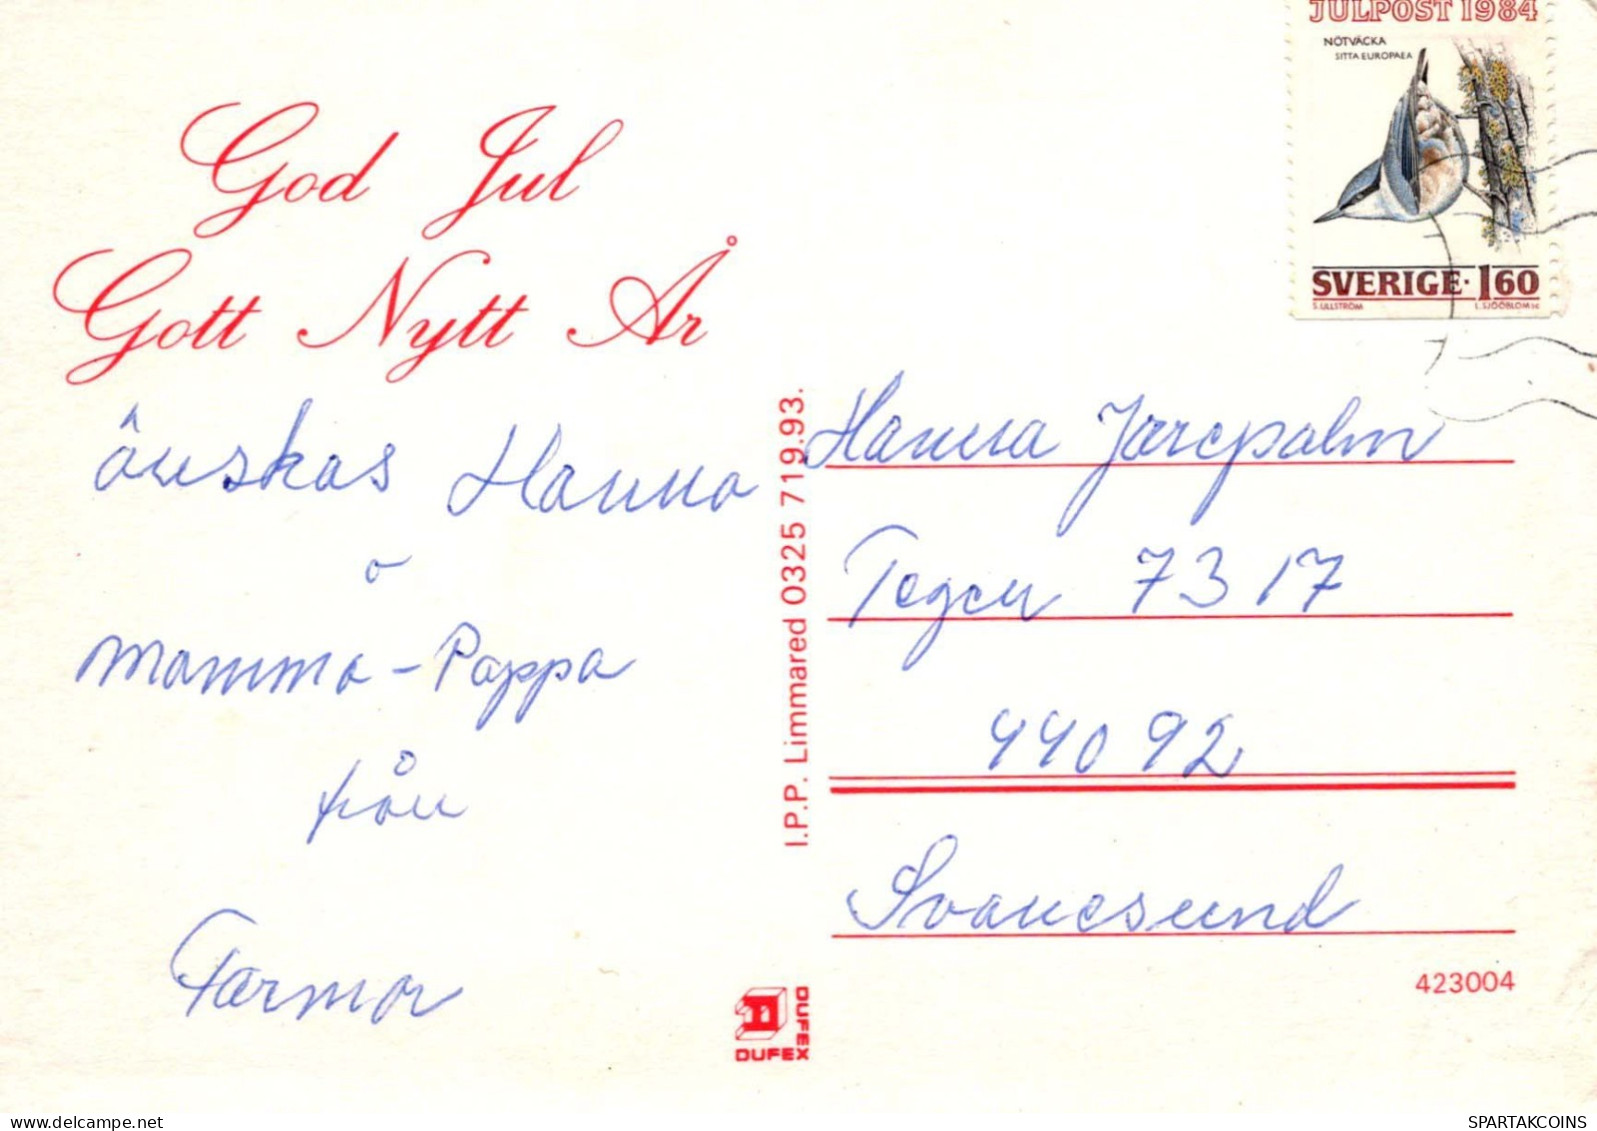 JULPOST 1984
NÖTVÄCKA
SITTA EUROPAEA
SVERIGE · 1.60
S. ULLSTRÖM
L. SJÖÖBLOM sc
God Jul
Gott Nytt År
önskas Hanna
o
Mamma - Pappa
från
Farmor
I.P.P. Limmared 0325 719.93.
Hanna Jarepalm
Tegen 7317
44092
Svanesund
423004
DUFEX
DUFEX
SPARTAKCOINS